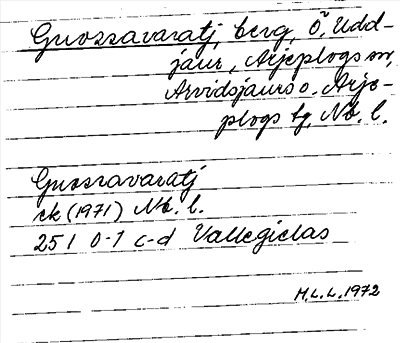 Guossavaratj, berg, Ö, Udd-
jaur, Arjeplogs sn,
Arvidsjaurs o. Arje-
plogs tg, Nb. l.
Guossavaratj
ek (1971) Nb. l.
25 I 0-1 c-d Vallegielas
H.L.L. 1972